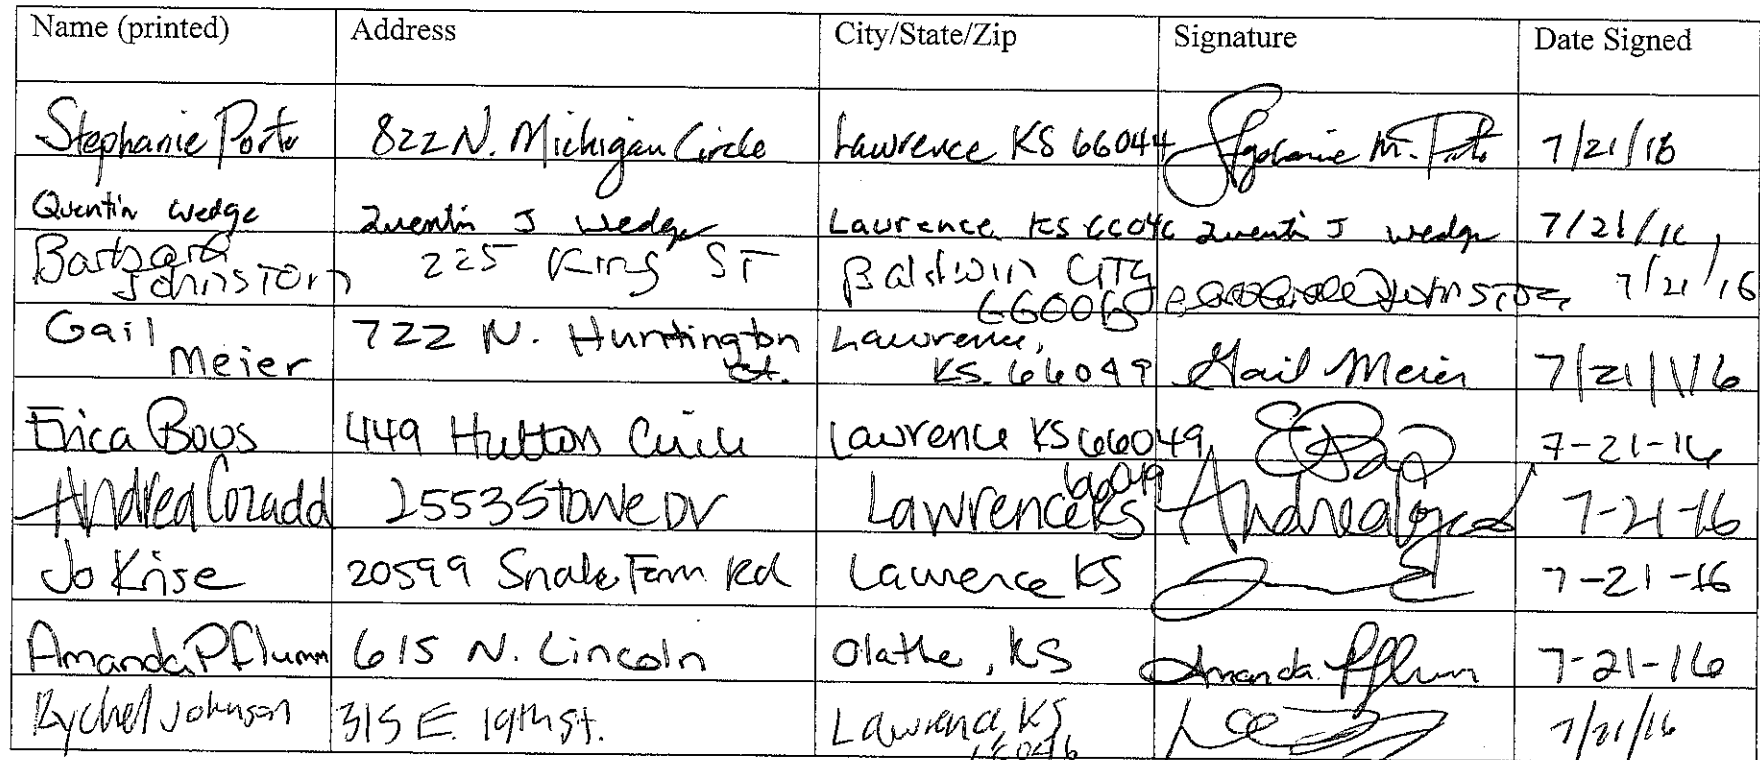 Name (printed) Address City/State/Zip Signature Date Signed
Stephanie Porto 822 N. Michigan Circle Lawrence KS 66044 Stephanie M. Porto 7/21/16
Quentin Wedge Quentin J Wedge Lawrence KS 66046 Quentin J Wedge 7/21/16
Barbara Johnston 225 King ST Baldwin City 66006 Johnston 7/21/16
Gail Meier 722 N. Huntington Ct. Lawrence, KS. 66049 Gail Meier 7/21/16
Erica Boos 449 Hutton Circle Lawrence KS 66049 7-21-16
Andrea Cozadd 2553 Stowe Dr Lawrence KS 66049 Andrea 7-21-16
Jo Krise 20599 Snake Farm Rd Lawrence KS 7-21-16
Amanda Pflumm 615 N. Lincoln Olathe, KS Amanda Pflumm 7-21-16
Rychel Johnson 315 E. 19th St. Lawrence, KS 66046 7/21/16